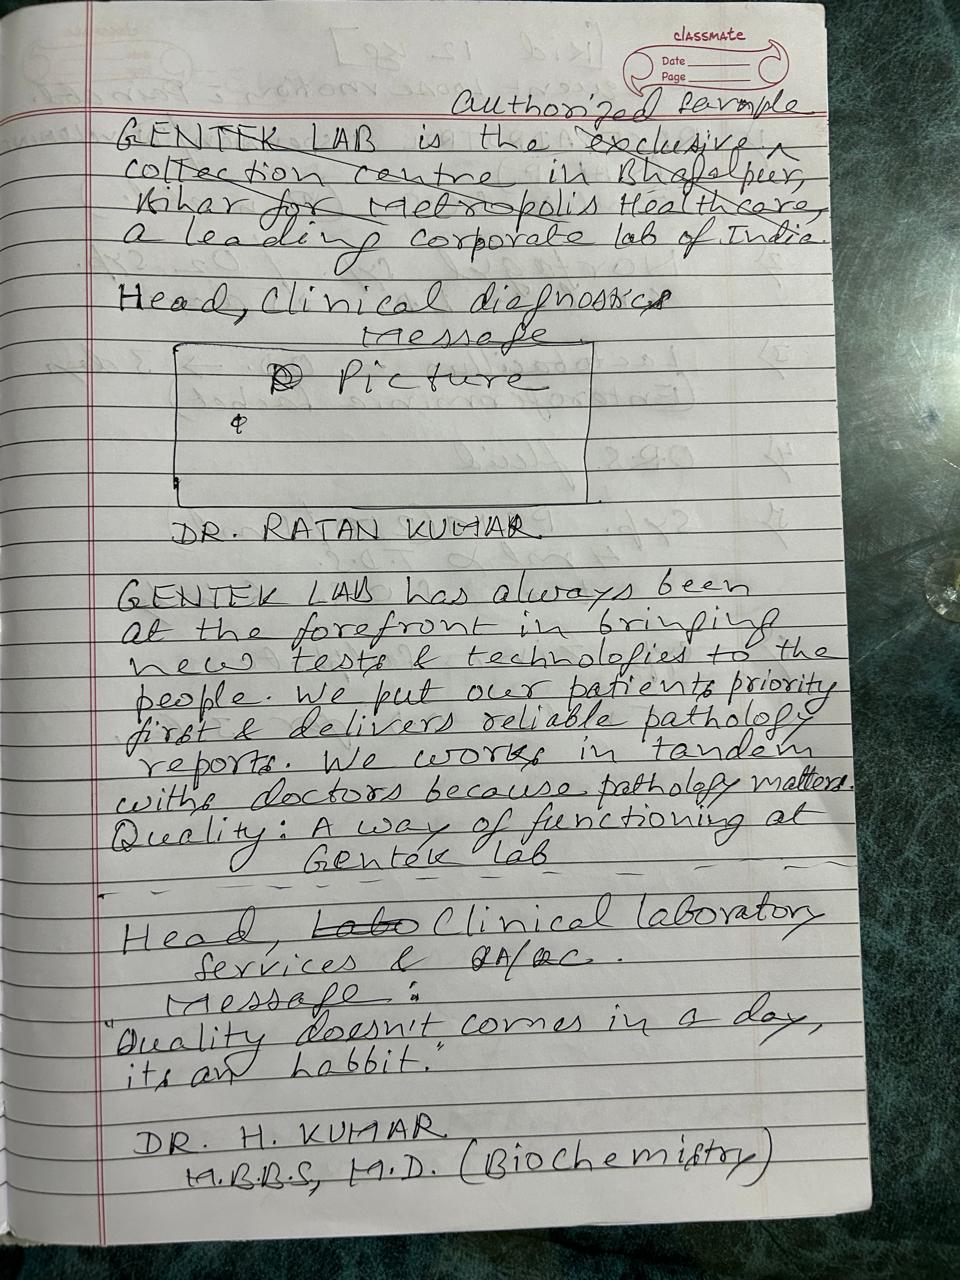 classmate
Date
Page
authorized sample
GENTEK LAB is the exclusive ^
collection centre in Bhagalpur,
Bihar for Metropolis Healthcare,
a leading corporate lab of India.
Head, Clinical diagnostics
Message
Picture
DR. RATAN KUMAR
GENTEK LAB has always been
at the forefront in bringing
new tests & technologies to the
people. We put our patients priority
first & delivers reliable pathology
reports. We works in tandem
withs doctors because pathology matters.
Quality: A way of functioning at
Gentek lab
Head, Labo Clinical laboratory
Services & QA/QC.
Message:
"Quality doesn't comes in a day,
its an habbit."
DR. H. KUMAR
M.B.B.S, M.D. (Biochemistry)